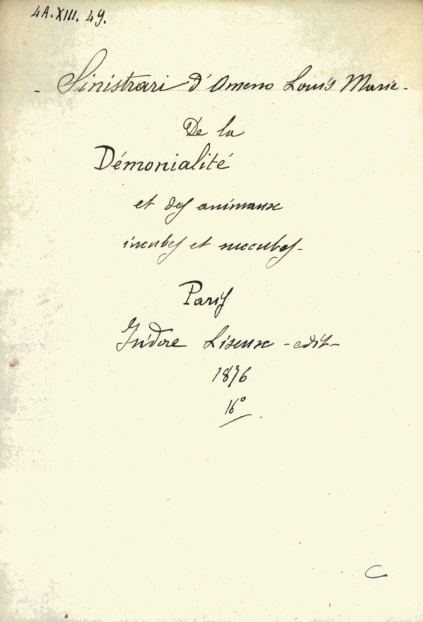 4A.XIII.49.
- Sinistrari d'Ameno Louis Marie -
De la
Démonialité
et des animaux
incubes et succubes -
Paris
Isidore Liseux - edit -
1876
16°
C